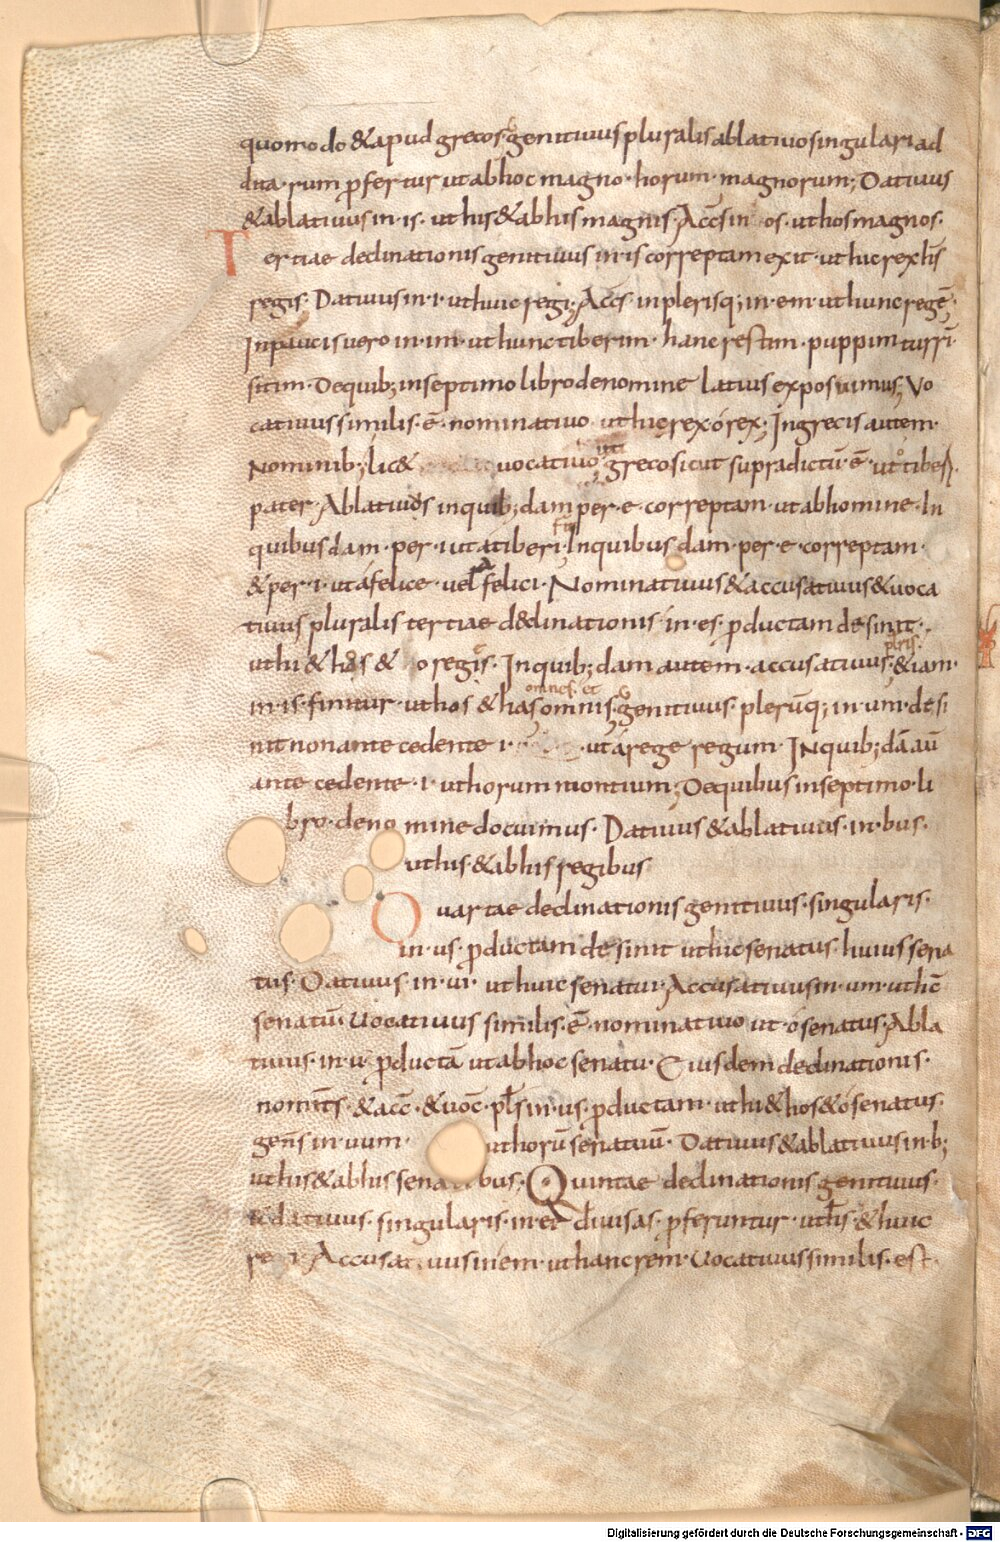 quomodo &apud grecos genitiuus pluralis ablatiuo singulari ad
dita · rum ꝓfertur ut ab hoc magno · horum · magnorum; Datiuus
&ablatiuus in · is · ut his &ab his magnis · Acc̄s in os · ut hos magnos ·
Tertiae declinationis genitiuus in is correptam exit · ut hic rex h̄is
regis · Datiuus in · i · ut huic regi; Acc̄s · in plerisq; in · em · ut hunc regē;
In paucis uero in · im · ut hunc tiberim · hanc restim · puppim turrī
sitim · De quib; in septimo libro de nomine latius exposuimus; Vo
catiuus similis · ē · nominatiuo ut hic rex ó rex; In grecis autem
Nominib; lic& uocatiuo greco sicut supradictū · ē · ut ó tiber
pater · Ablatiuos in quib; dam per · e · correptam · ut ab homine · In
quibusdam · per · i ut a tiberi; In quibus dam · per · e · correptam ·
&per · i · ut á felice · uel felici · Nominatiuus &accusatiuus &uoca
tiuus pluralis tertiae declinationis · in · es · ꝓductam desinit ·
pl̄ris ·
ut hi & has & o reges · In quib; dam autem · accusatiuus; &iam
omnes · et
in · is · finitur · ut hos & has omnis; genitiuus · plerūq; in · um · desi
nit non antecedente i · ut á rege regum · In quib; dā aū
antecedente · i · ut horum montium; De quibus in septimo · li
bro · de no mine docuimus · Datiuus &ablatiuus · in · bus ·
ut his · &ab his regibus
Quartae declinationis genitiuus · singularis ·
in · us · ꝓductam desinit ut hic senatus · huius sena
tus · Datiuus · in · ui · ut huic senatui · Accusatiuus in · um · ut hc̄
senatū · Uocatiuus similis · ē · nominatiuo ut · ó senatus; Abla
tiuus · in · u · ꝓductā ut ab hoc senatu · Eiusdem declinationis ·
nomīts · &acc̄ · &uoc̄ · pl̄s in · us · ꝓductam · ut hi &hos &ó senatus ·
gen̄s in · uum · ut horū senatuū · Datiuus &ablatiuus in · b;
ut his &ab his sena bus; Quintae declinationis genitiuus ·
&datiuus · singularis · in · ei diuisas · ꝓferuntur · ut h̄is &huic
re i · Accusat uus in em · ut hanc rem · Uocatiuus similis · est ·
Digitalisierung gefördert durch die Deutsche Forschungsgemeinschaft - DFG